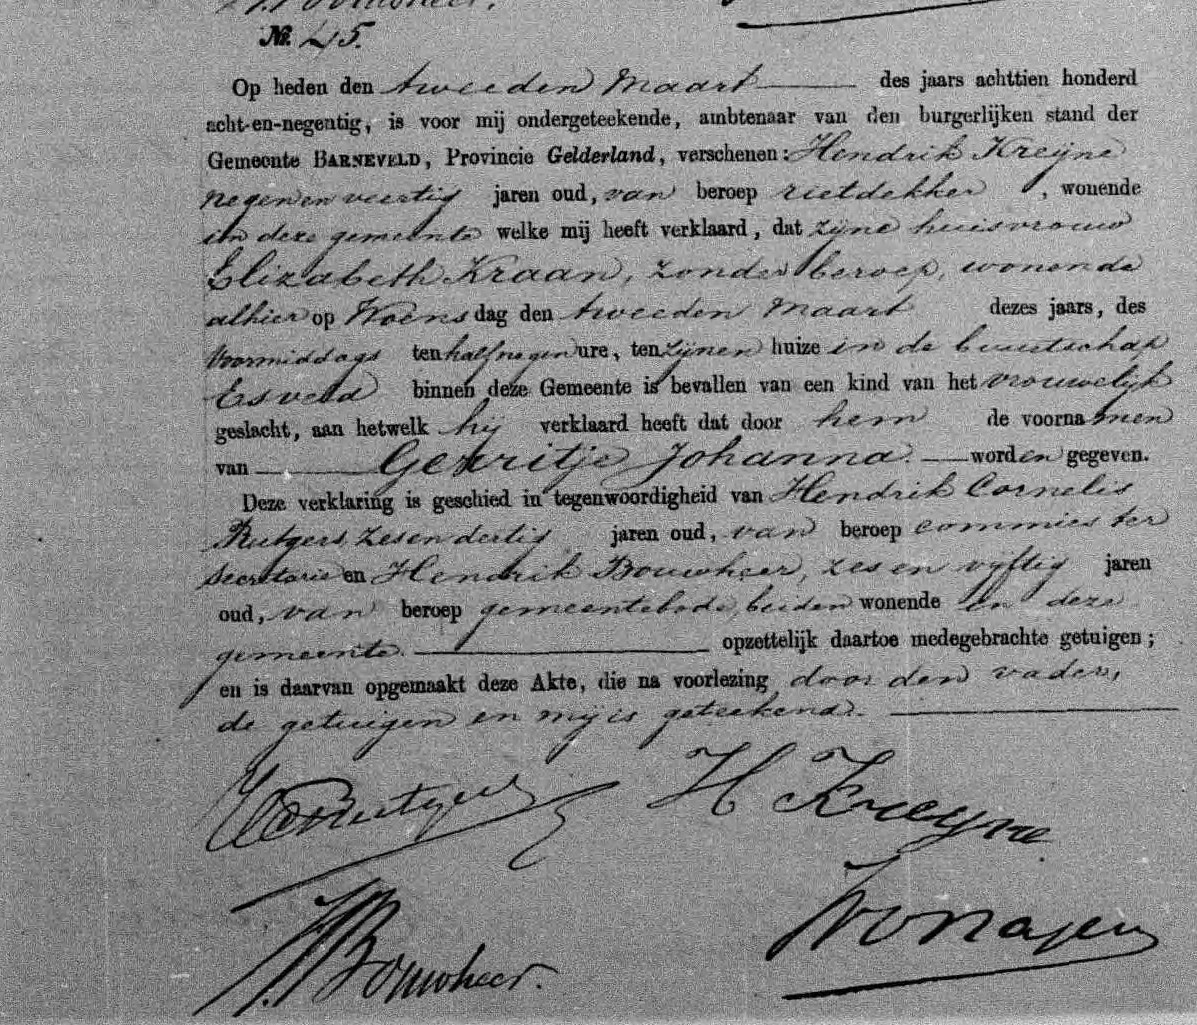 Bouwheer.
№. 45.
Op heden den tweeden Maart des jaars achttien honderd
acht-en-negentig, is voor mij ondergeteekende, ambtenaar van den burgerlijken stand der
Gemeente BARNEVELD, Provincie Gelderland, verschenen: Hendrik Kreyne
negen en veertig jaren oud, van beroep rietdekker, wonende
in deze gemeente welke mij heeft verklaard, dat zijne huisvrouw
Elizabeth Kraan, zonder beroep, wonende
alhier op Woensdag den tweeden Maart dezes jaars, des
Voormiddags ten half negen ure, ten zijnen huize in de buurtschap
Esveld binnen deze Gemeente is bevallen van een kind van het vrouwelijk
geslacht, aan hetwelk hij verklaard heeft dat door hem de voornamen
van Gerritje Johanna. worden gegeven.
Deze verklaring is geschied in tegenwoordigheid van Hendrik Cornelis
Rutgers zes en dertig jaren oud, van beroep commies ter
secretarie en Hendrik Bouwheer, zes en vijftig jaren
oud, van beroep gemeentebode, beiden wonende in deze
gemeente. opzettelijk daartoe medegebrachte getuigen;
en is daarvan opgemaakt deze Akte, die na voorlezing door den vader,
de getuigen en mij is geteekend.
HCRutgers H Kreyne
H. Bouwheer.